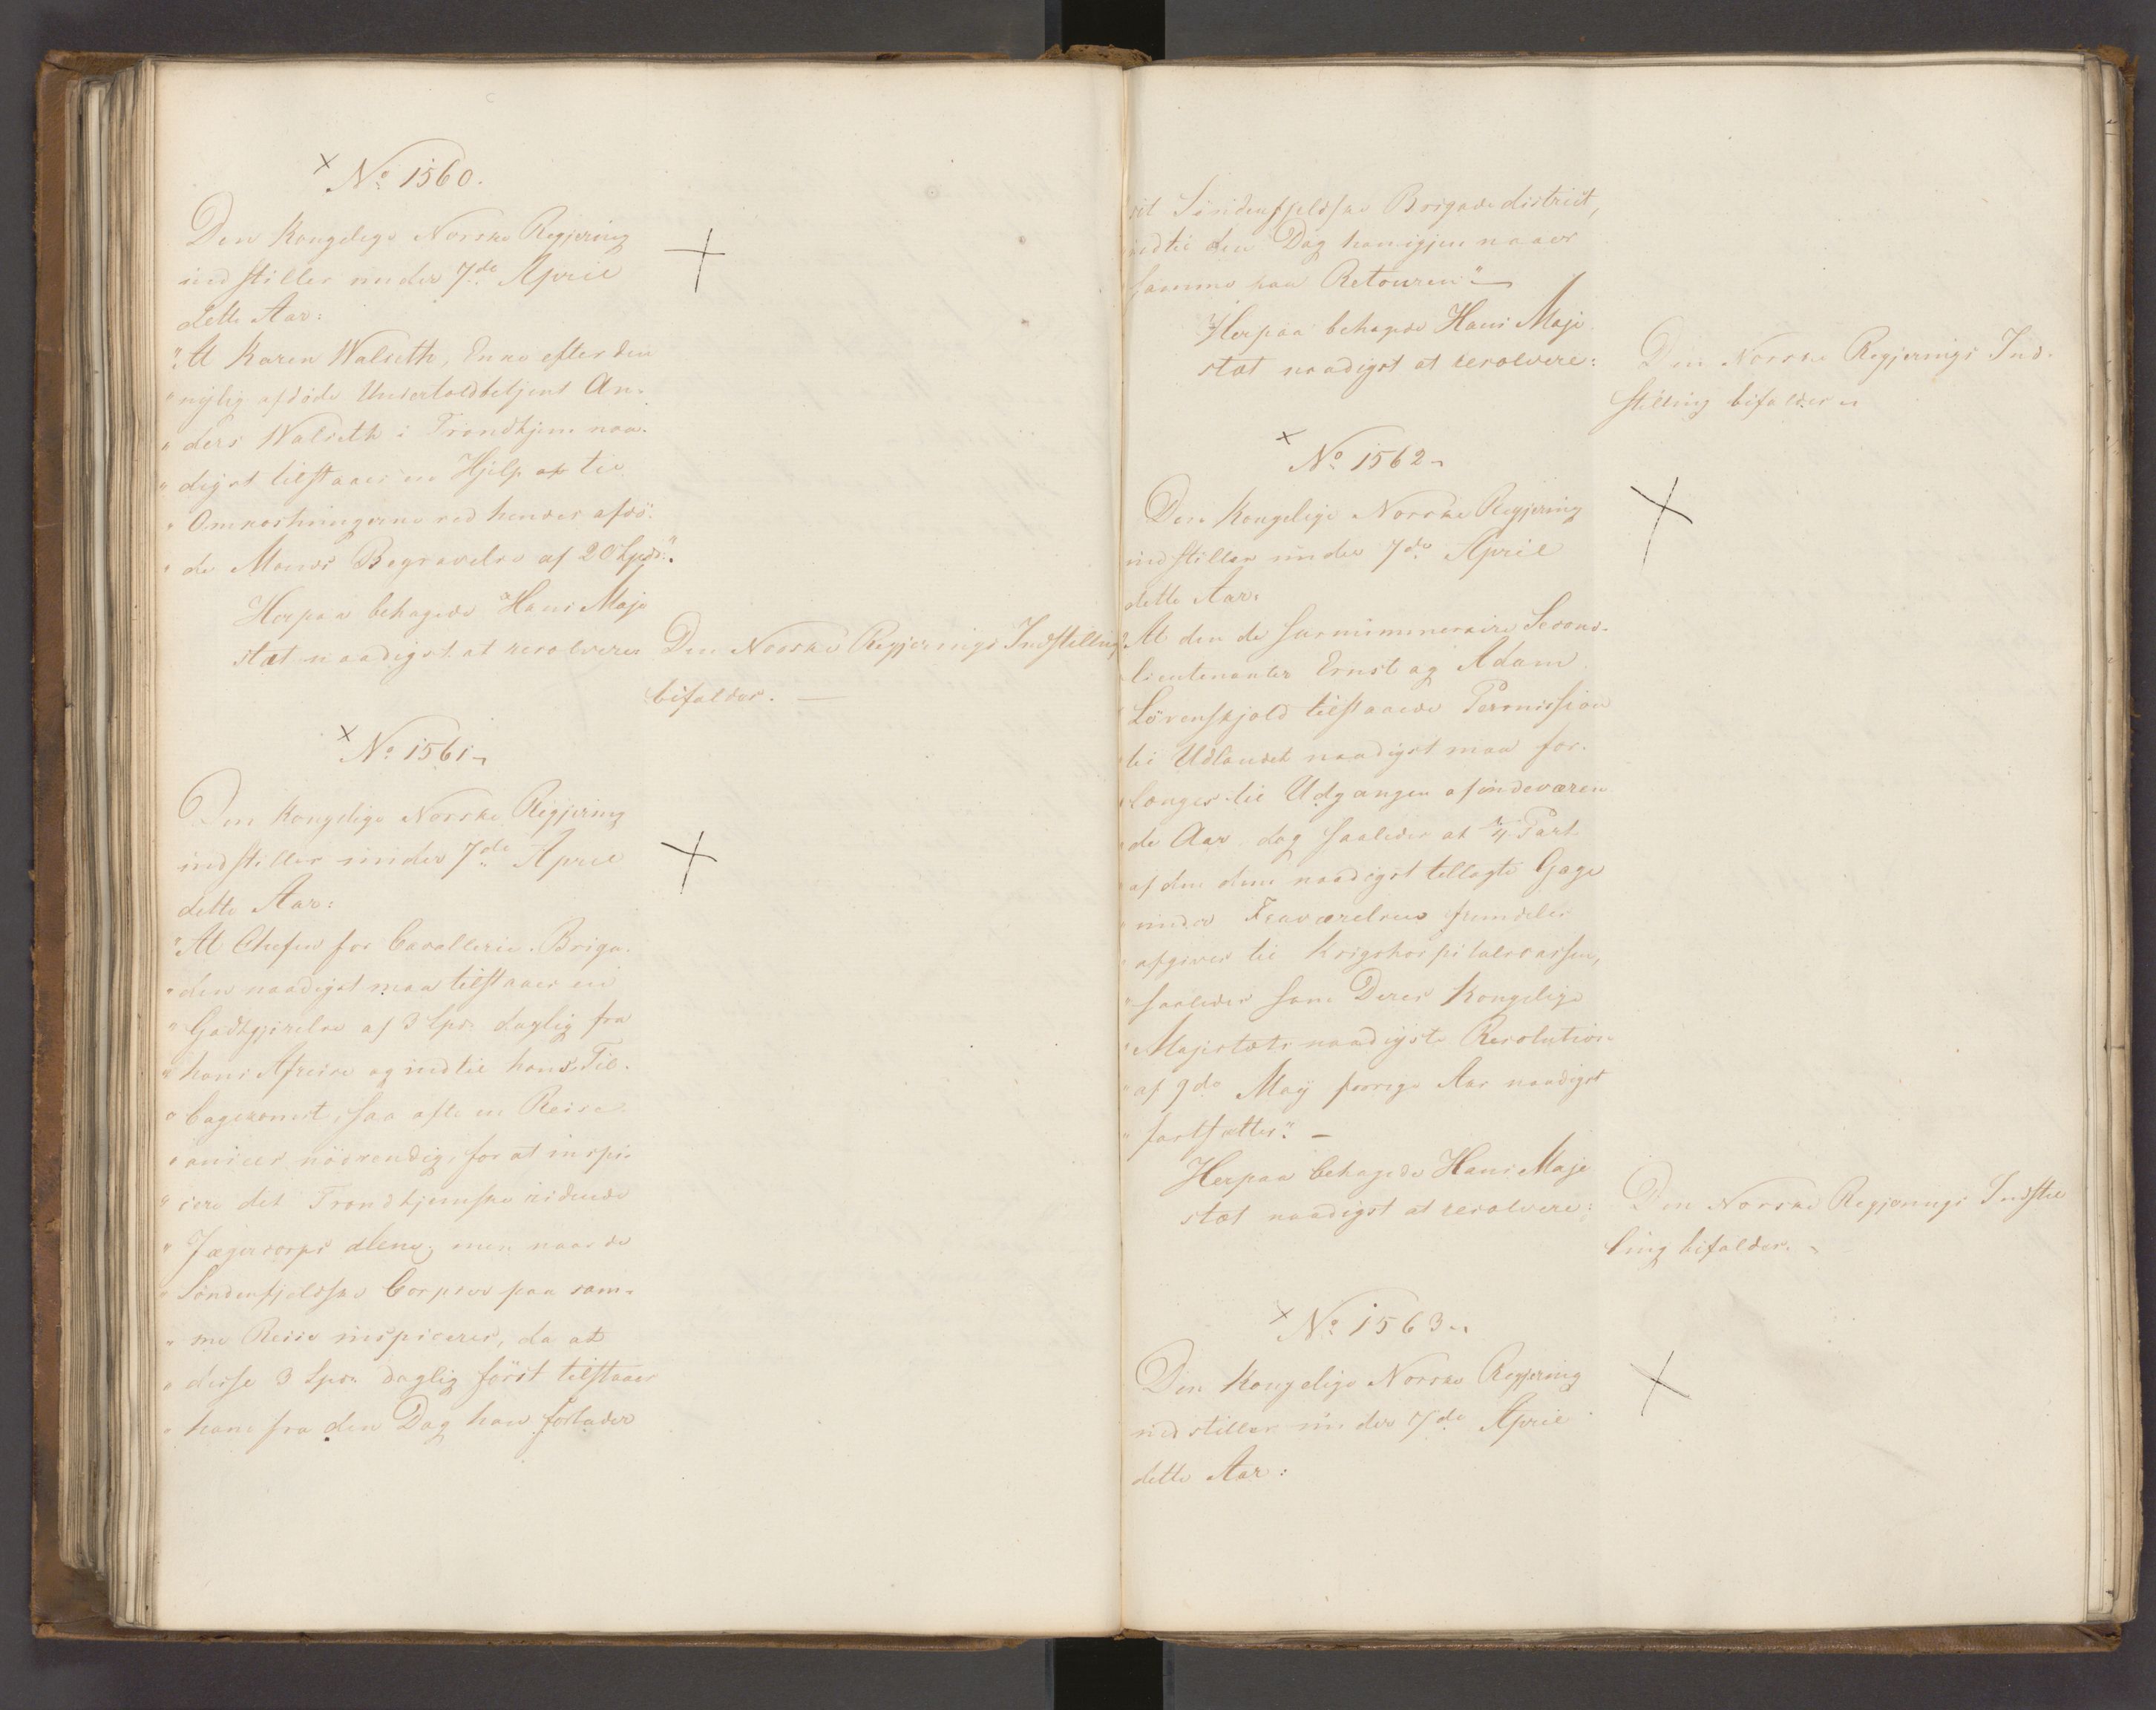 × No 1560.
Den Kongelige Norske Regjering
indstiller under 7de April
dette Aar:
"At Karen Walseth, Enke efter den
"nylig afdöde Undertoldbetjent An-
"ders Walseth i Trondhjem naa-
"digst tilstaaes en Hjelp af til
"Omkostningerne ved hendes afdö-
"de Mands Begravelse af 20 Spdr:".
Herpaa behagede Hans Maje
stæt naadigst at resolvere:
Den Norske Regjerings Indstilling
bifaldes. —
× No 1561
Den Kongelige Norske Regjering
indstiller under 7de April
dette Aar:
"At Chefen for Cavallerie-Briga-
"den naadigst maa tilstaaes en
"Godtgjörelse af 3 Spdr. daglig fra
"hans Afreise og indtil hans Til-
"bagekomst, saa ofte en Reise
"ansees nödvendig, for at inspi-
"cere det Trondhjemske ridende
"Jægercorps alene; men naar de
"Söndenfjeldske Corpser paa sam-
"me Reise inspiceres, da at
"disse 3 Spdr. daglig först tilstaaes
"ham fra den Dag han forlader
sit Söndenfjeldske Brigadedistrict,
indtil den Dag han igjen naaer
samme paa Retouren". —
Herpaa behagede Hans Maje
stæt naadigst at resolvere:
Den Norske Regjerings Ind-
stilling bifaldes
× No 1562
Den Kongelige Norske Regjering
indstiller under 7de April
dette Aar:
"At den de surnummeraire Second-
lieutenanter Ernst og Adam
Lövenskjold tilstaaede Permission
til Udlandet naadigst maa for-
længes til Udgangen af indeværen
de Aar, dog saaledes at 1/4 Part
"af den dem naadigst tillagte Gage
"under Fraværelsen fremdeles
"afgives til Krigshospitalscassen,
"saaledes som Deres Kongelige
"Majestæts naadigste Resolution
"af 9de Maÿ forrige Aar naadigst
"fastsætter". —
Herpaa behagede Hans Maje
stæt naadigst at resolvere:
Den Norske Regjerings Indstil
ling bifaldes.
× No 1563
Den Kongelige Norske Regjering
indstiller under 7de April
dette Aar: